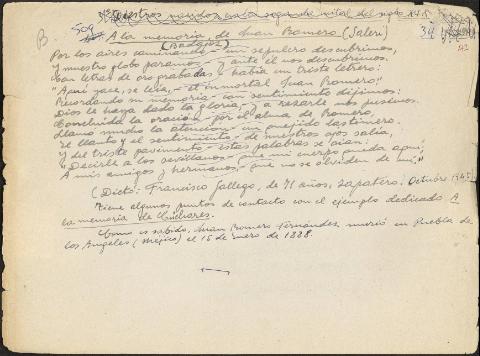 B. 509 Nuestros mundos en la segunda mitad del siglo XIX 34
A la memoria de Juan Romero (Saleri)
(Badajoz)
Por los aires caminando — un sepulcro descubrimos,
y nuestro globo paramos — y ante él nos descubrimos.
Con letras de oro grabadas — había un triste letrero:
"Aquí yace, se leía, — el inmortal Juan Romero,"
Recordando su memoria — con sentimiento dijimos:
Dios le haya dado la gloria, — y a rezarle nos pusimos.
Concluida la oración — por el alma de Romero,
llamó mucho la atención — un quejido lastimero.
El llanto y el sentimiento — de nuestros ojos salía,
y del triste pavimento — estas palabras se oían:
"Decirle a los sevillanos — que mi cuerpo queda aquí,
A mis amigos y hermanos, — que no se olviden de mí."
(Dictó: Francisco Gallego, de 71 años, zapatero. Octubre 1945)
Tiene algunos puntos de contacto con el ejemplo dedicado A
la memoria de Cúchares.
Como es sabido, Juan Romero Fernández murió en Puebla de
los Angeles (Méjico) el 15 de Enero de 1888.